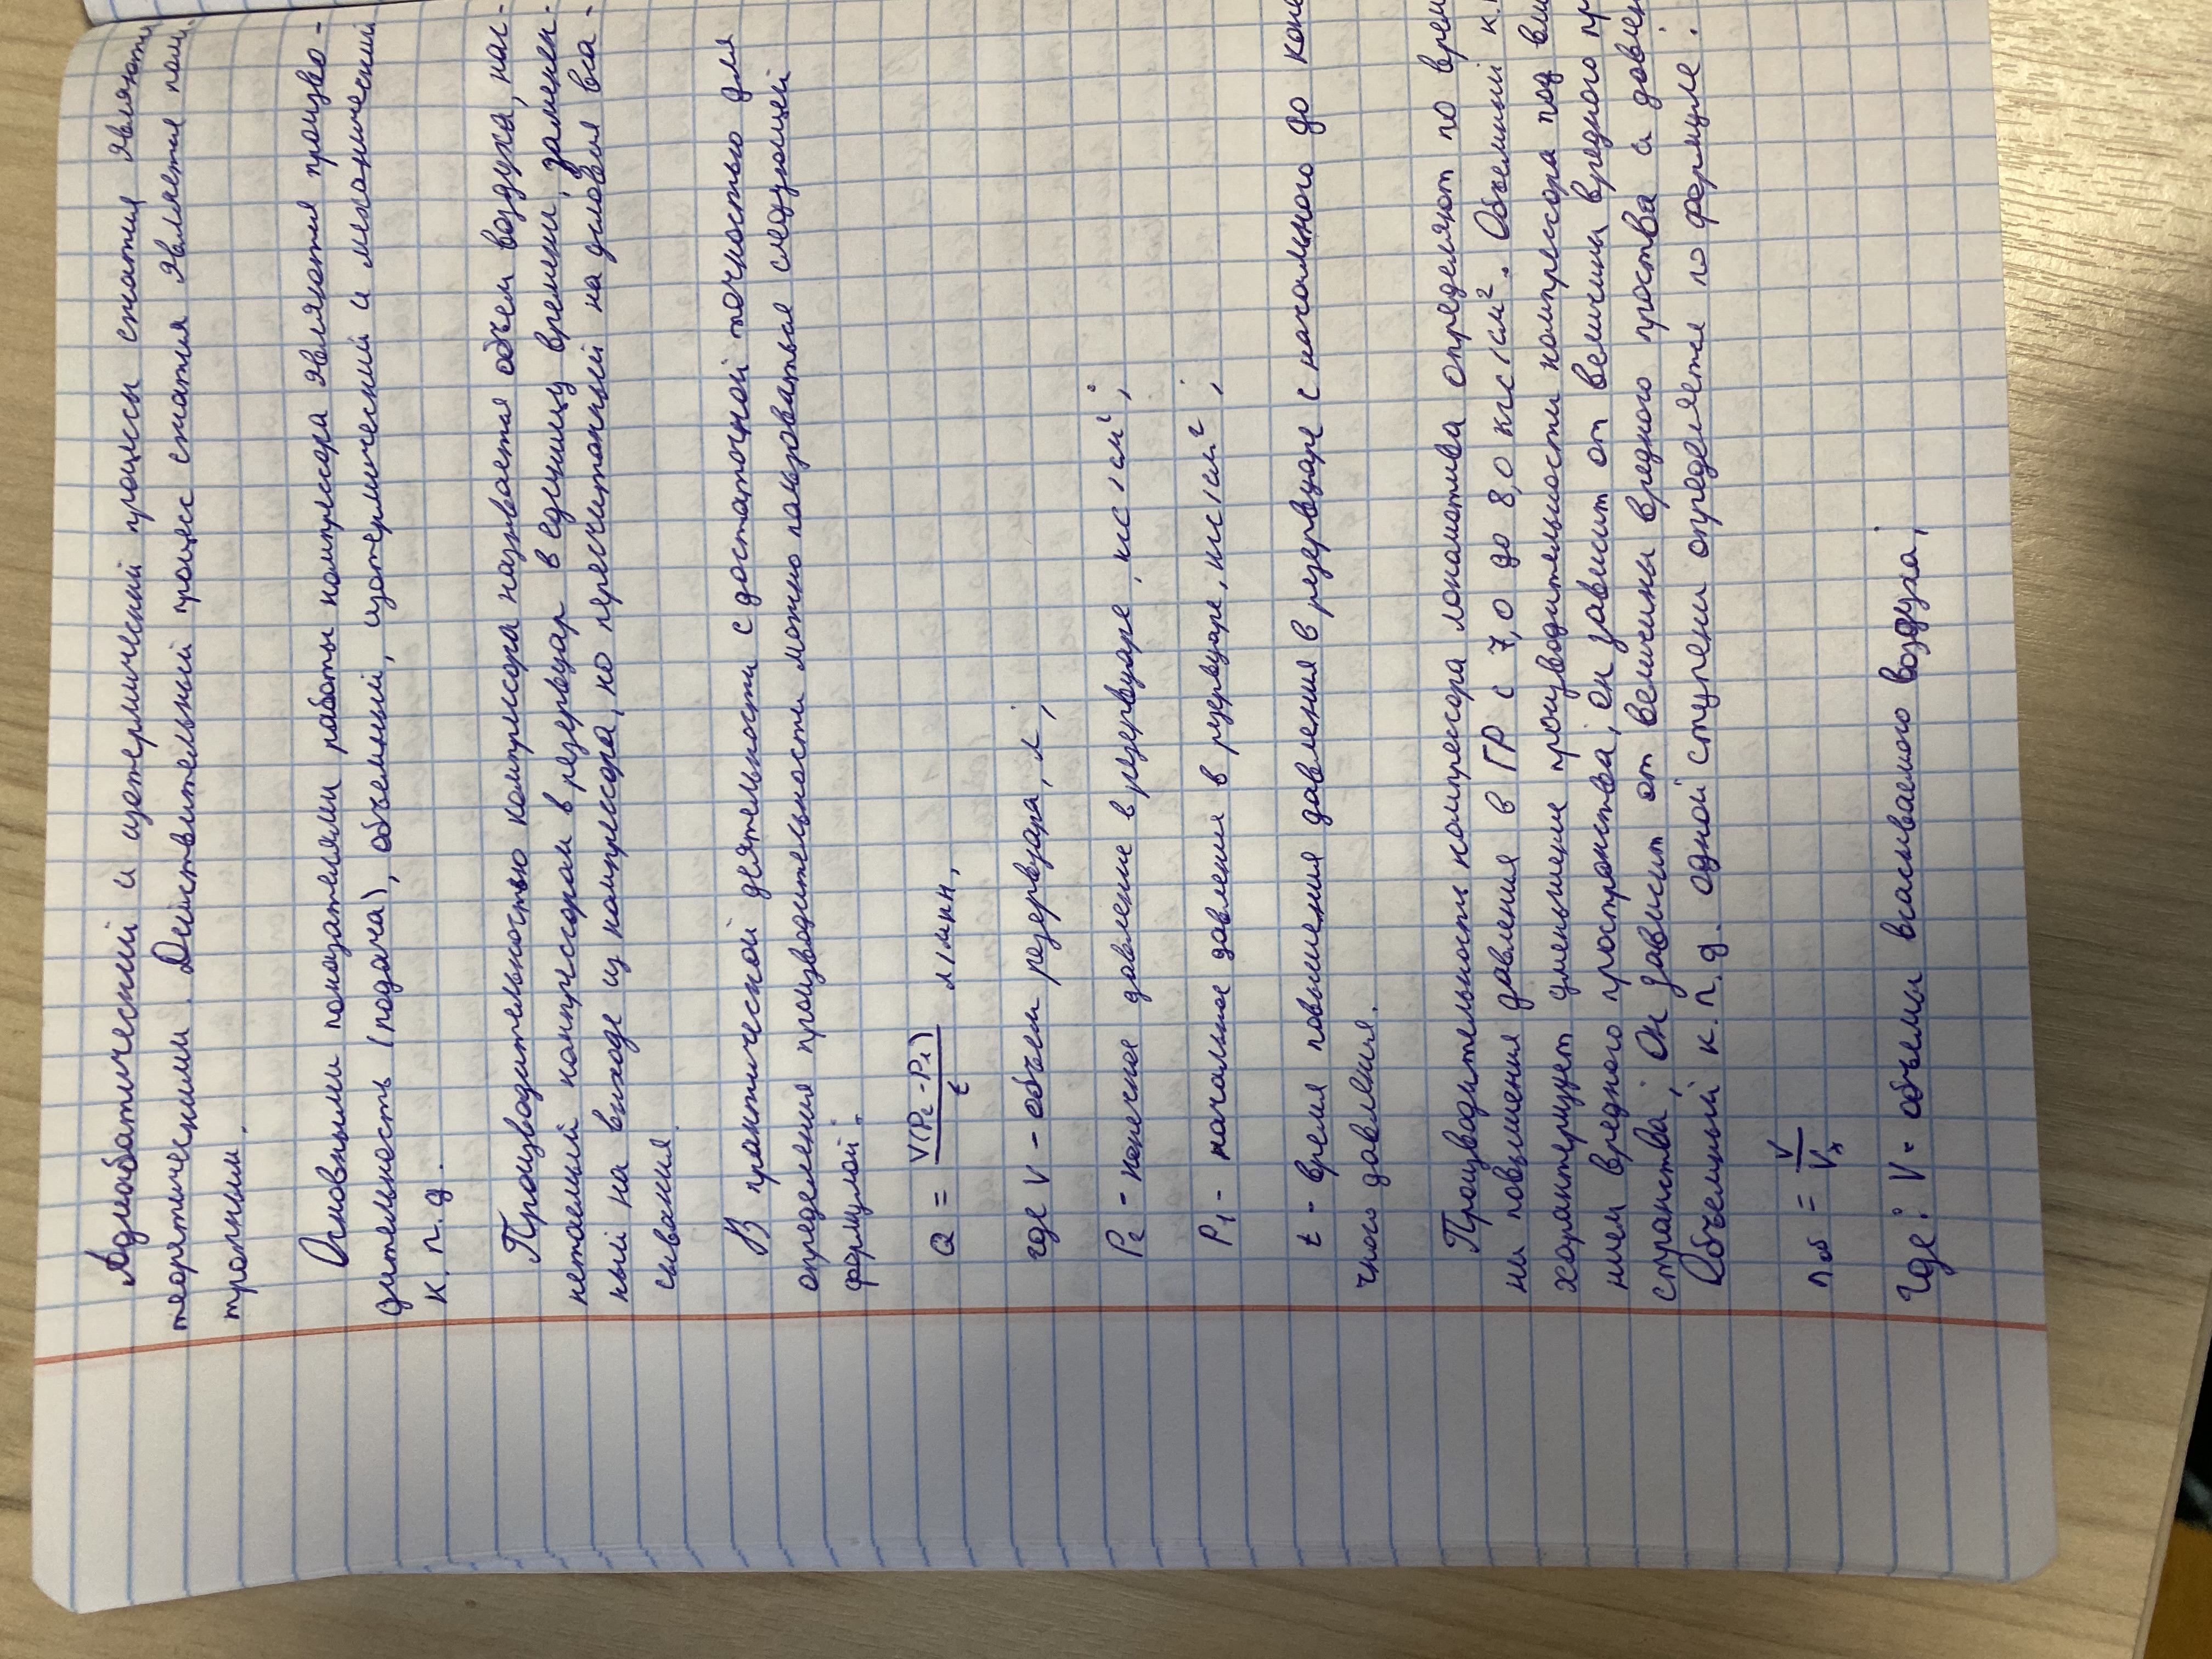 Адиабатический и изотермический процессы сжатия являютс
теоретическими. Действительный процесс сжатия является поли-
тропным.
Основными показателями работы компрессора являются произво-
дительность (подача), объемный, изотермический и механический
к.п.д.
Производительностью компрессора называется объем воздуха, наг-
нетаемый компрессором в резервуар в единицу времени, замерен-
ный на выходе из компрессора, но пересчитанный на условия вса-
сывания.
В практической деятельности с достаточной точностью для
определения производительности можно пользоваться следующей
формулой:
Q = V(P2-P1)/t л/мин,
где V - объем резервуара, л;
P2 - конечное давление в резервуаре, кгс/см²;
P1 - начальное давление в резервуаре, кгс/см²;
t - время повышения давления в резервуаре с начального до коне
чного давления.
Производительность компрессора локомотива определяют по време
ни повышения давления в ГР с 7,0 до 8,0 кгс/см². Объемный к.
характеризует уменьшение производительности компрессора под вли
нием вредного пространства; он зависит от величины вредного пр
странства; Он зависит от величины вредного проства и давлен
Объемный к.п.д. одной ступени определяется по формуле:
nоб = V/Vх
Где: V - объемы всасываемого воздуха;